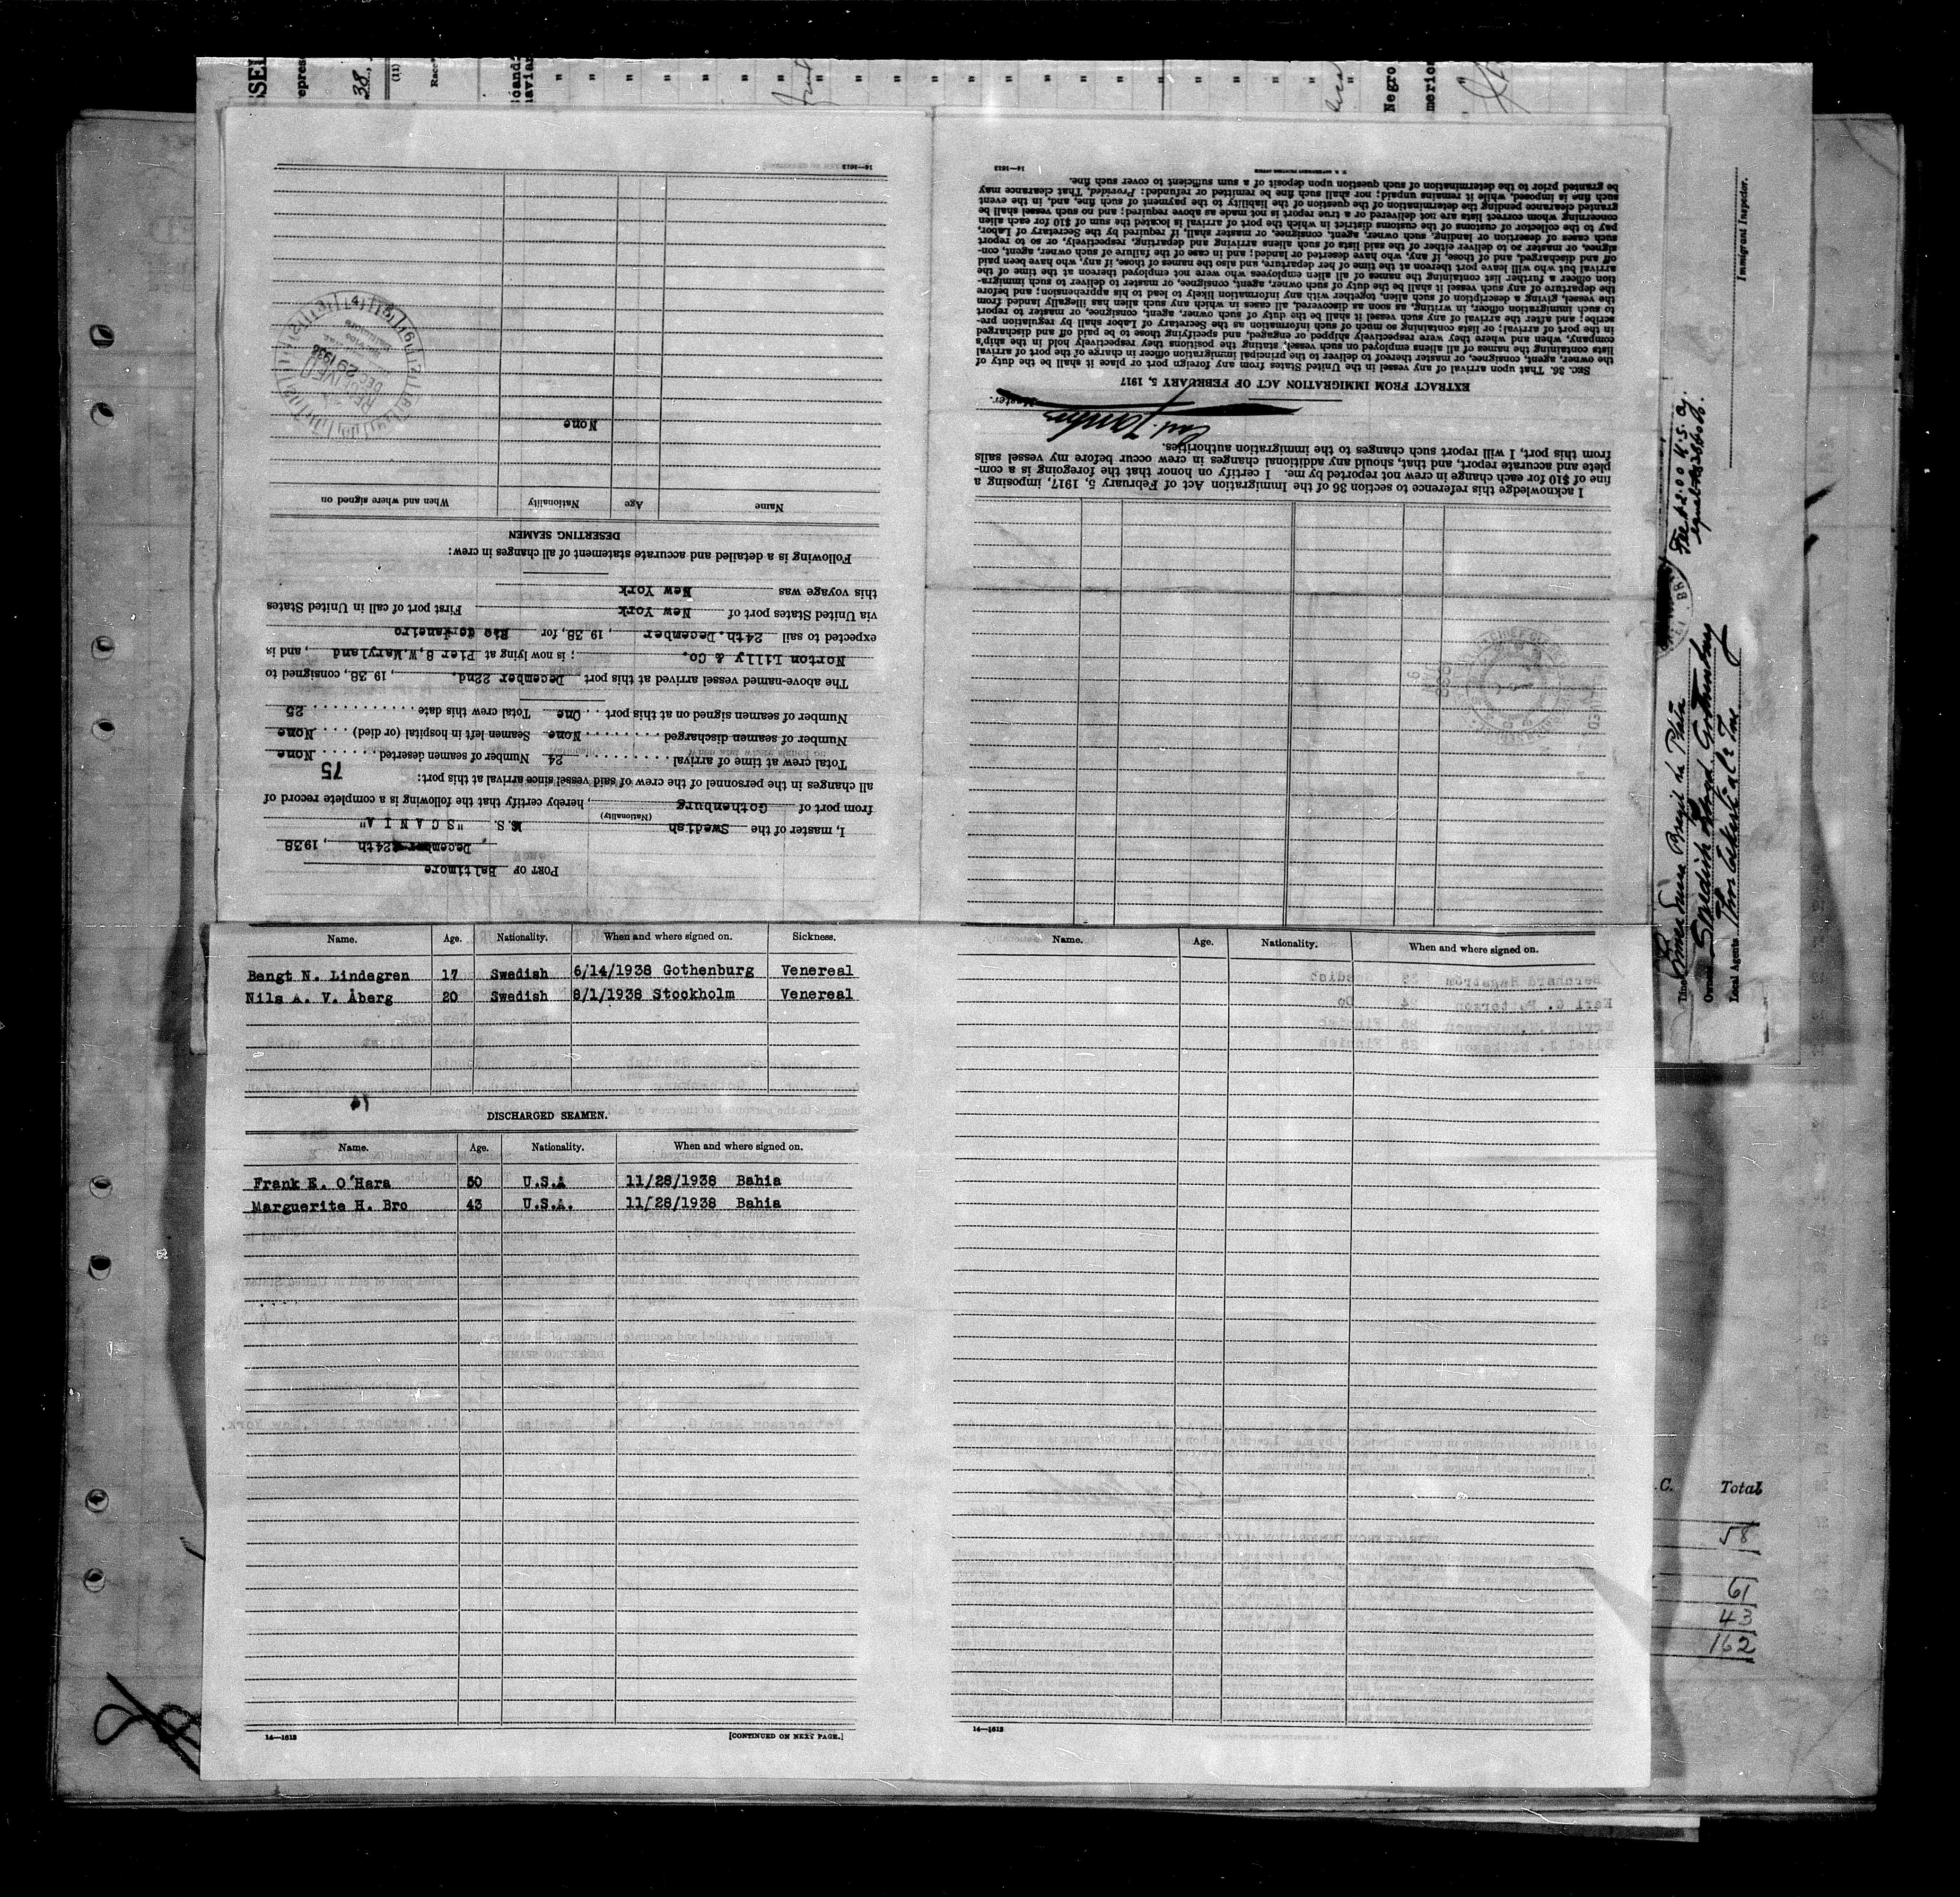 PORT OF Baltimore
December 24th, 1938
I, master of the Swedish M.S. "SCANIA"
(Nationality)
from port of Gothenburg, hereby certify that the following is a complete record of
all changes in the personnel of the crew of said vessel since arrival at this port:
75
Total crew at time of arrival 24 Number of seamen deserted None
Number of seamen discharged None Seamen left in hospital (or died) None
Number of seamen signed on at this port One Total crew this date 25
The above-named vessel arrived at this port December 22nd., 19 38, consigned to
Norton Lilly & Co. ; is now lying at Pier 8, W.Maryland, and is
expected to sail 24th. December, 19 38, for Rio de Janeiro
via United States port of New York First port of call in United States
this voyage was New York
Following is a detailed and accurate statement of all changes in crew:
DESERTING SEAMEN
Name Age Nationality When and where signed on
None
RECEIVED
DEC 29 1938
14—1613
I acknowledge this reference to section 36 of the Immigration Act of February 5, 1917, imposing a
fine of $10 for each change in crew not reported by me. I certify on honor that the foregoing is a com-
plete and accurate report, and that, should any additional changes in crew occur before my vessel sails
from this port, I will report such changes to the immigration authorities.
Master.
EXTRACT FROM IMMIGRATION ACT OF FEBRUARY 5, 1917
SEC. 36. That upon arrival of any vessel in the United States from any foreign port or place it shall be the duty of
the owner, agent, consignee, or master thereof to deliver to the principal immigration officer in charge of the port of arrival
lists containing the names of all aliens employed on such vessel, stating the positions they respectively hold in the ship's
company, when and where they were respectively shipped or engaged, and specifying those to be paid off and discharged
in the port of arrival; or lists containing so much of such information as the Secretary of Labor shall by regulation pre-
scribe; and after the arrival of any such vessel it shall be the duty of such owner, agent, consignee, or master to report
to such immigration officer, in writing, as soon as discovered, all cases in which any such alien has illegally landed from
the vessel, giving a description of such alien, together with any information likely to lead to his apprehension; and before
the departure of any such vessel it shall be the duty of such owner, agent, consignee, or master to deliver to such immigra-
tion officer a further list containing the names of all alien employees who were not employed thereon at the time of the
arrival but who will leave port thereon at the time of her departure, and also the names of those, if any, who have been paid
off and discharged, and of those, if any, who have deserted or landed; and in case of the failure of such owner, agent, con-
signee, or master so to deliver either of the said lists of such aliens arriving and departing, respectively, or so to report
such cases of desertion or landing, such owner, agent, consignee, or master shall, if required by the Secretary of Labor,
pay to the collector of customs of the customs district in which the port of arrival is located the sum of $10 for each alien
concerning whom correct lists are not delivered or a true report is not made as above required; and no such vessel shall be
granted clearance pending the determination of the question of the liability to the payment of such fine, and, in the event
such fine is imposed, while it remains unpaid; nor shall such fine be remitted or refunded: Provided, That clearance may
be granted prior to the determination of such question upon deposit of a sum sufficient to cover such fine.
14—1613
Name. Age. Nationality. When and where signed on. Sickness.
Bengt N. Lindegren 17 Swedish 6/14/1938 Gothenburg Venereal
Nils A. V. Åberg 20 Swedish 8/1/1938 Stockholm Venereal
DISCHARGED SEAMEN.
Name. Age. Nationality. When and where signed on.
Frank E. O'Hara 50 U.S.A 11/28/1938 Bahia
Marguerite H. Bro 43 U.S.A. 11/28/1938 Bahia
14—1613
[CONTINUED ON NEXT PAGE.]
Name. Age. Nationality. When and where signed on.
14—1613
38,
(11)
Negro
Immigrant Inspector.
Line
Owners
Local Agents
.C. Total
58
61
43
162